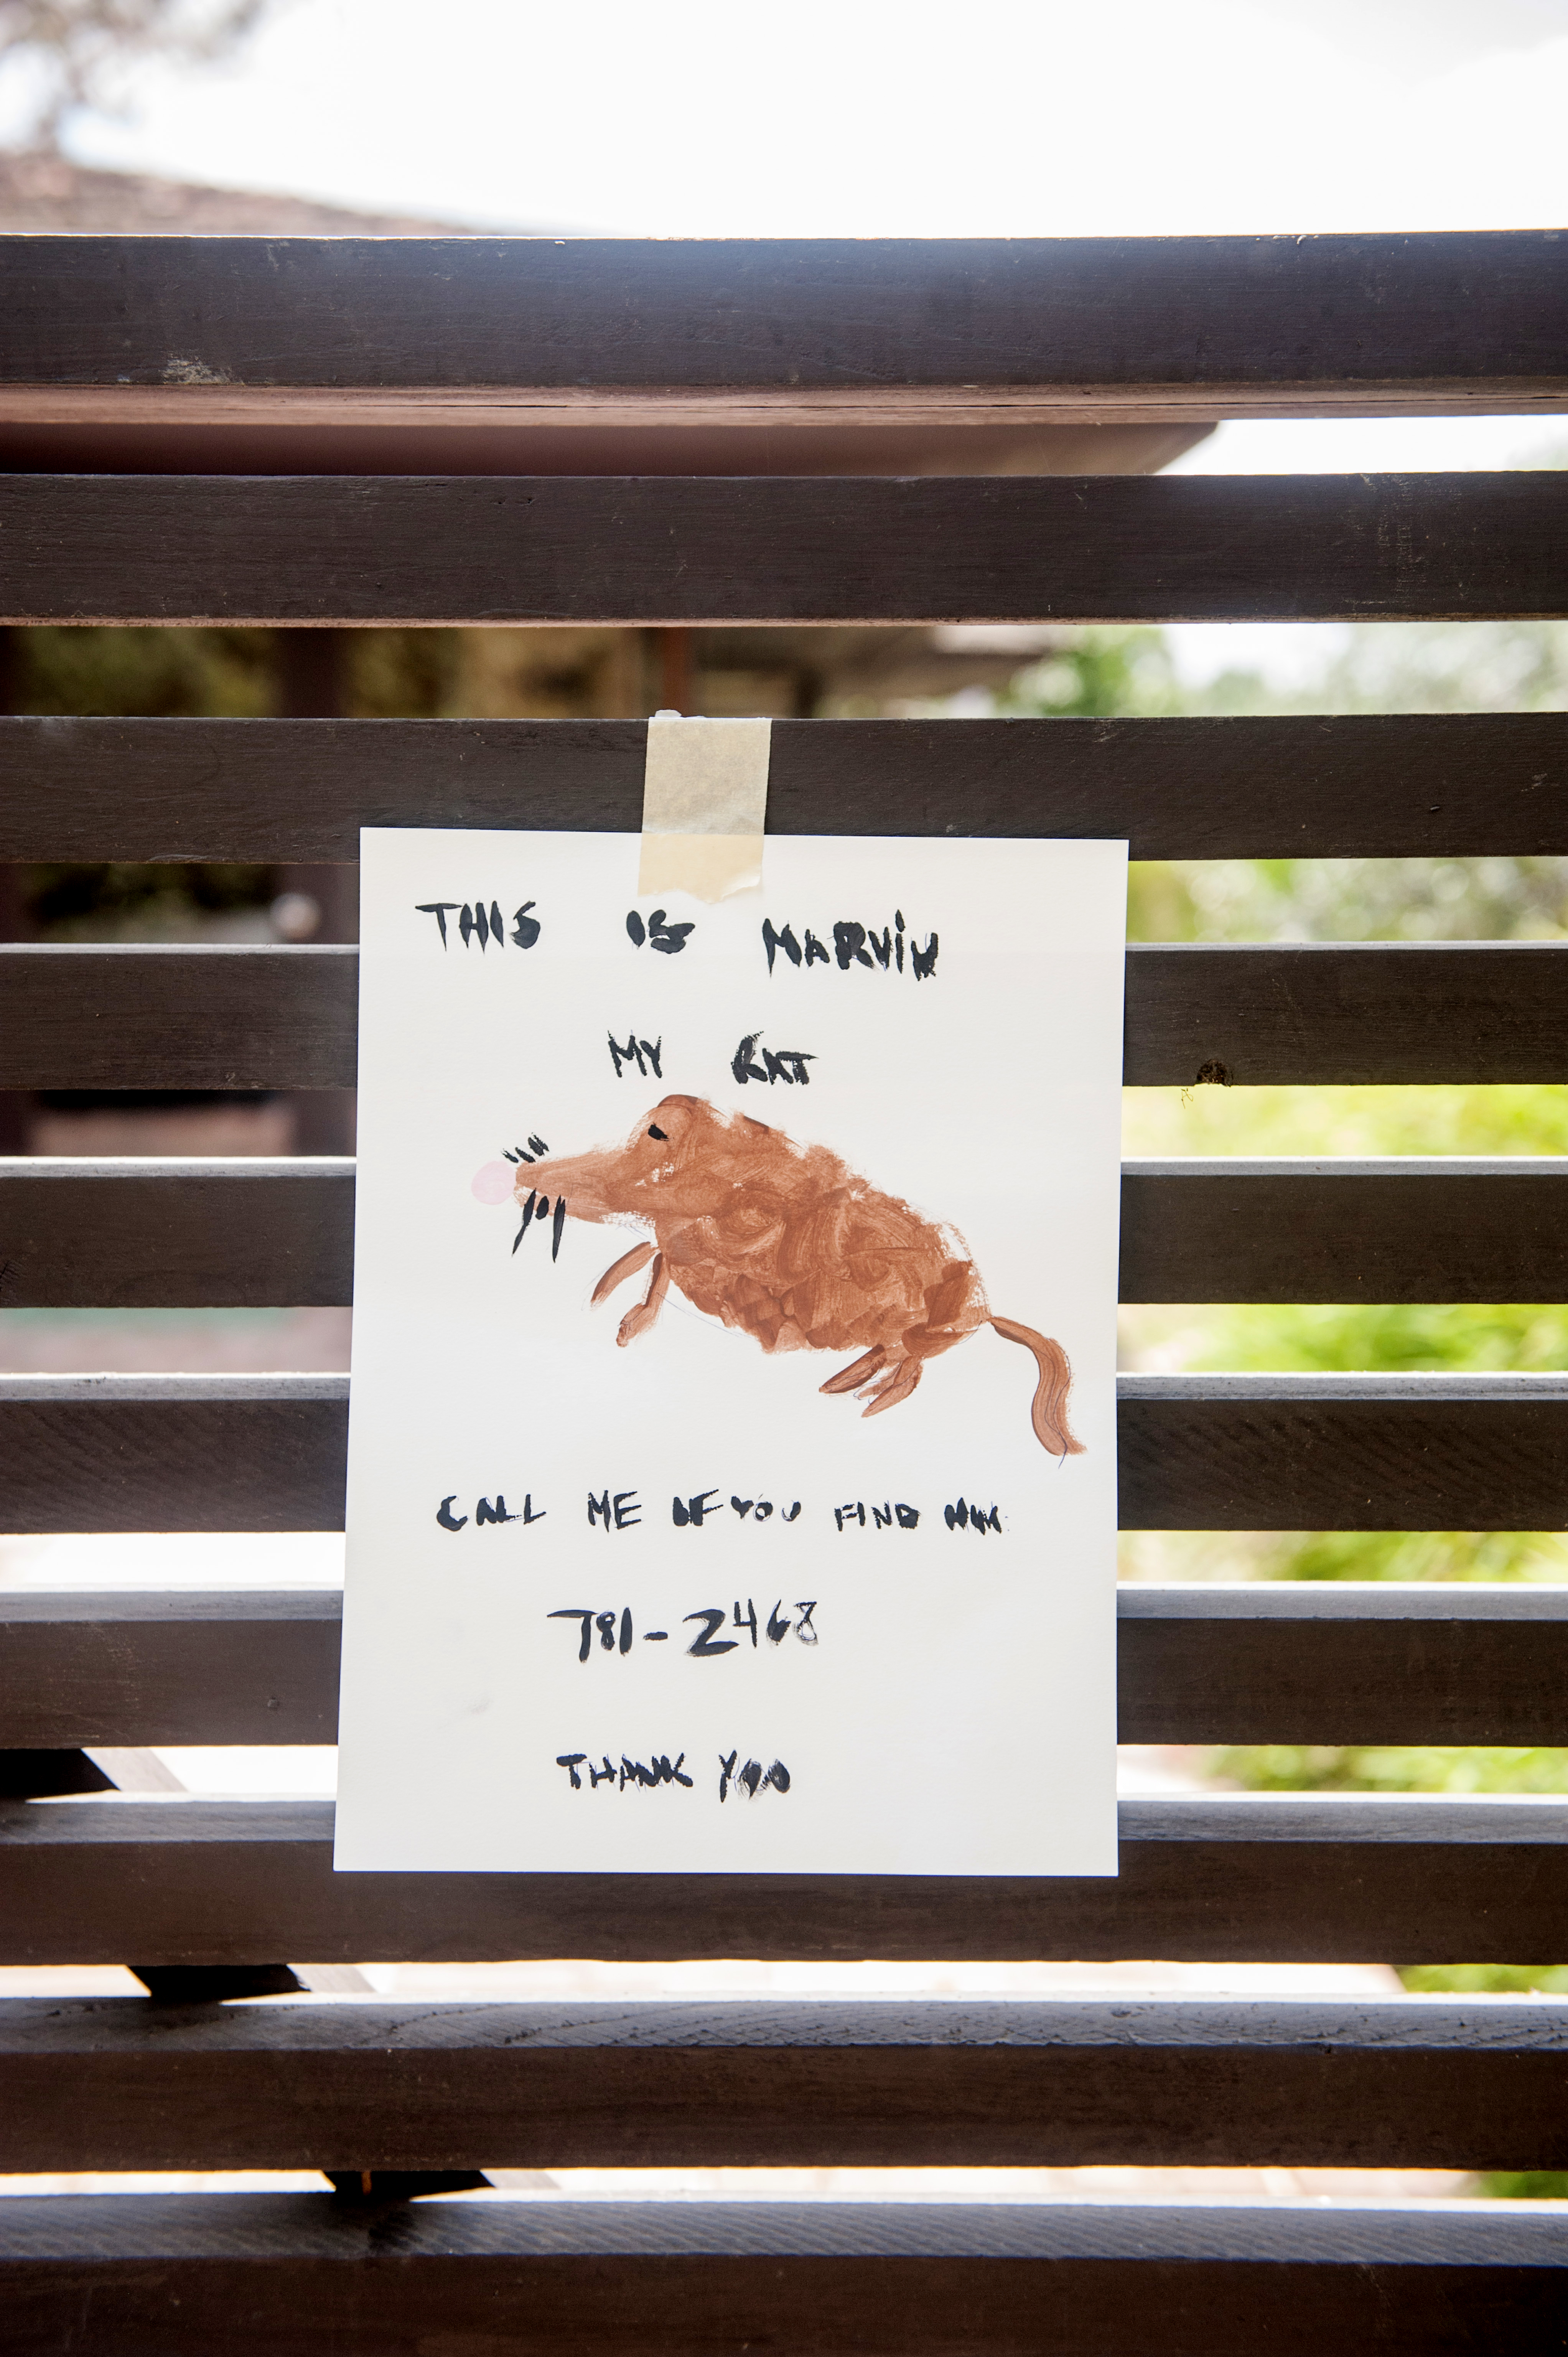 THIS IS MARViN
MY RAT
CALL ME IF YOU FIND HIM.
781-2468
THANK YOU